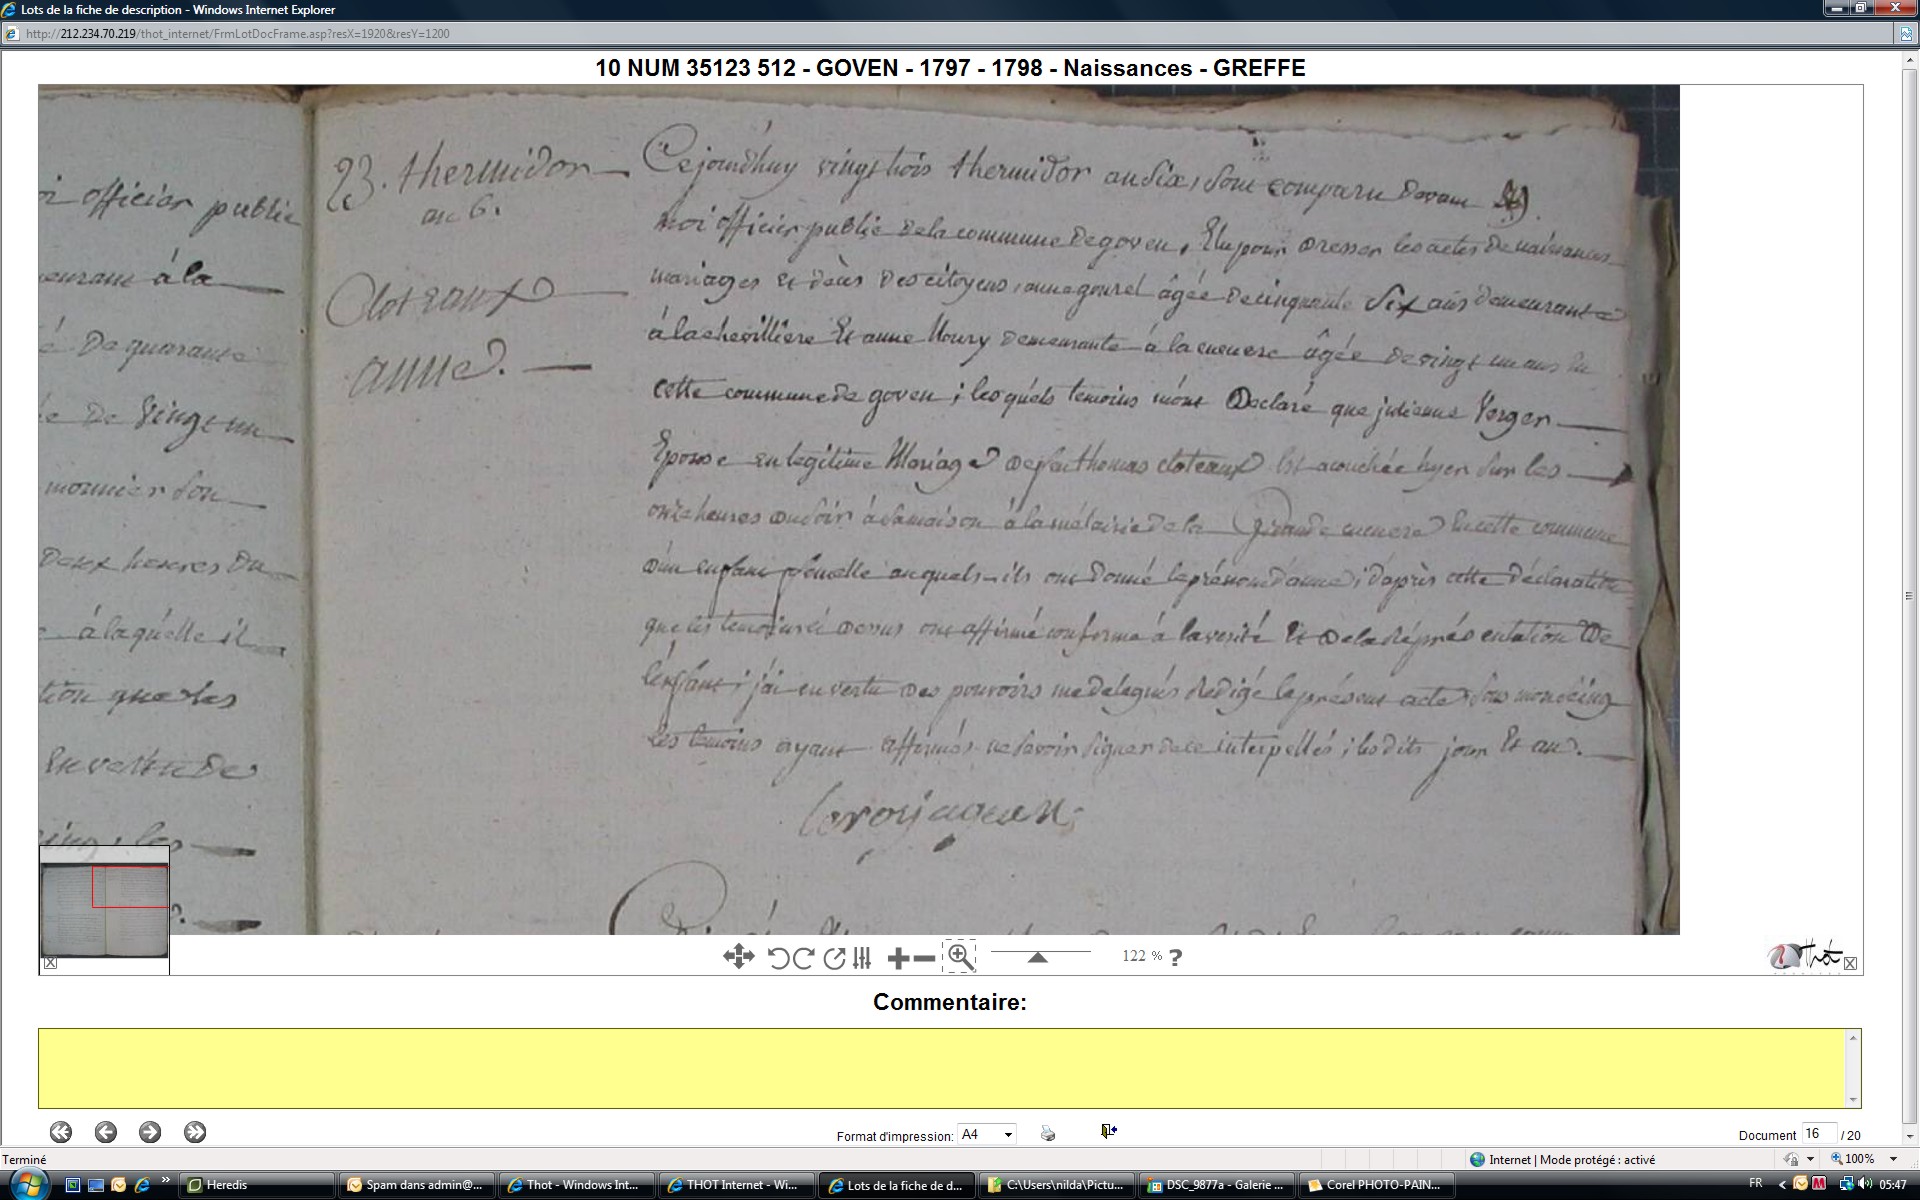 Lots de la fiche de description - Windows Internet Explorer
http://212.234.70.219/thot_internet/FrmLotDocFrame.asp?resX=1920&resY=1200
10 NUM 35123 512 - GOVEN - 1797 - 1798 - Naissances - GREFFE
officier public
à la
De quarante
De Vingt un
monnier son
Deux heures Du
à laquelle il
tion que les
En vertu De
seing ; les
23. thermidor
an 6.
Cloteaux
anne.
Cejourdhuy vingt trois thermidor an six, sont comparu devant
moi officier public de la commune de goven, Elu pour dresser les actes de naissances
mariages et décès des citoyens, anne gourel âgée de cinquante six ans demeurante
à la chevillière Et anne Houry demeurante à la âgée de vingt un ans
cette commune de goven ; lesquels temoins m'ont Déclaré que julienne Verger
Epouse en legitime Mariage de thomas cloteaux Est acouchée hyer sur les
onze heures du soir à sa maison à la métairie de la Grande En cette commune
d'un enfant femelle auquels ils ont donné le prénom d'anne ; d'après cette déclaration
que les temoins ci dessus ont affirmé conforme à la verité Et de la représentation De
l'enfant ; j'ai en vertu des pouvoirs me delegués rédigé le présent acte sous mon seing
les temoins ayant affirmés ne savoir signer de ce interpellés ; les dits jour Et an.
122 %
?
Thot
Commentaire:
Format d'impression: A4
Document 16 / 20
Terminé
Internet | Mode protégé : activé
100%
Heredis
Spam dans admin@...
Thot - Windows Int...
THOT Internet - Wi...
Lots de la fiche de d...
C:\Users\nilda\Pictu...
DSC_9877a - Galerie ...
Corel PHOTO-PAIN...
FR
05:47